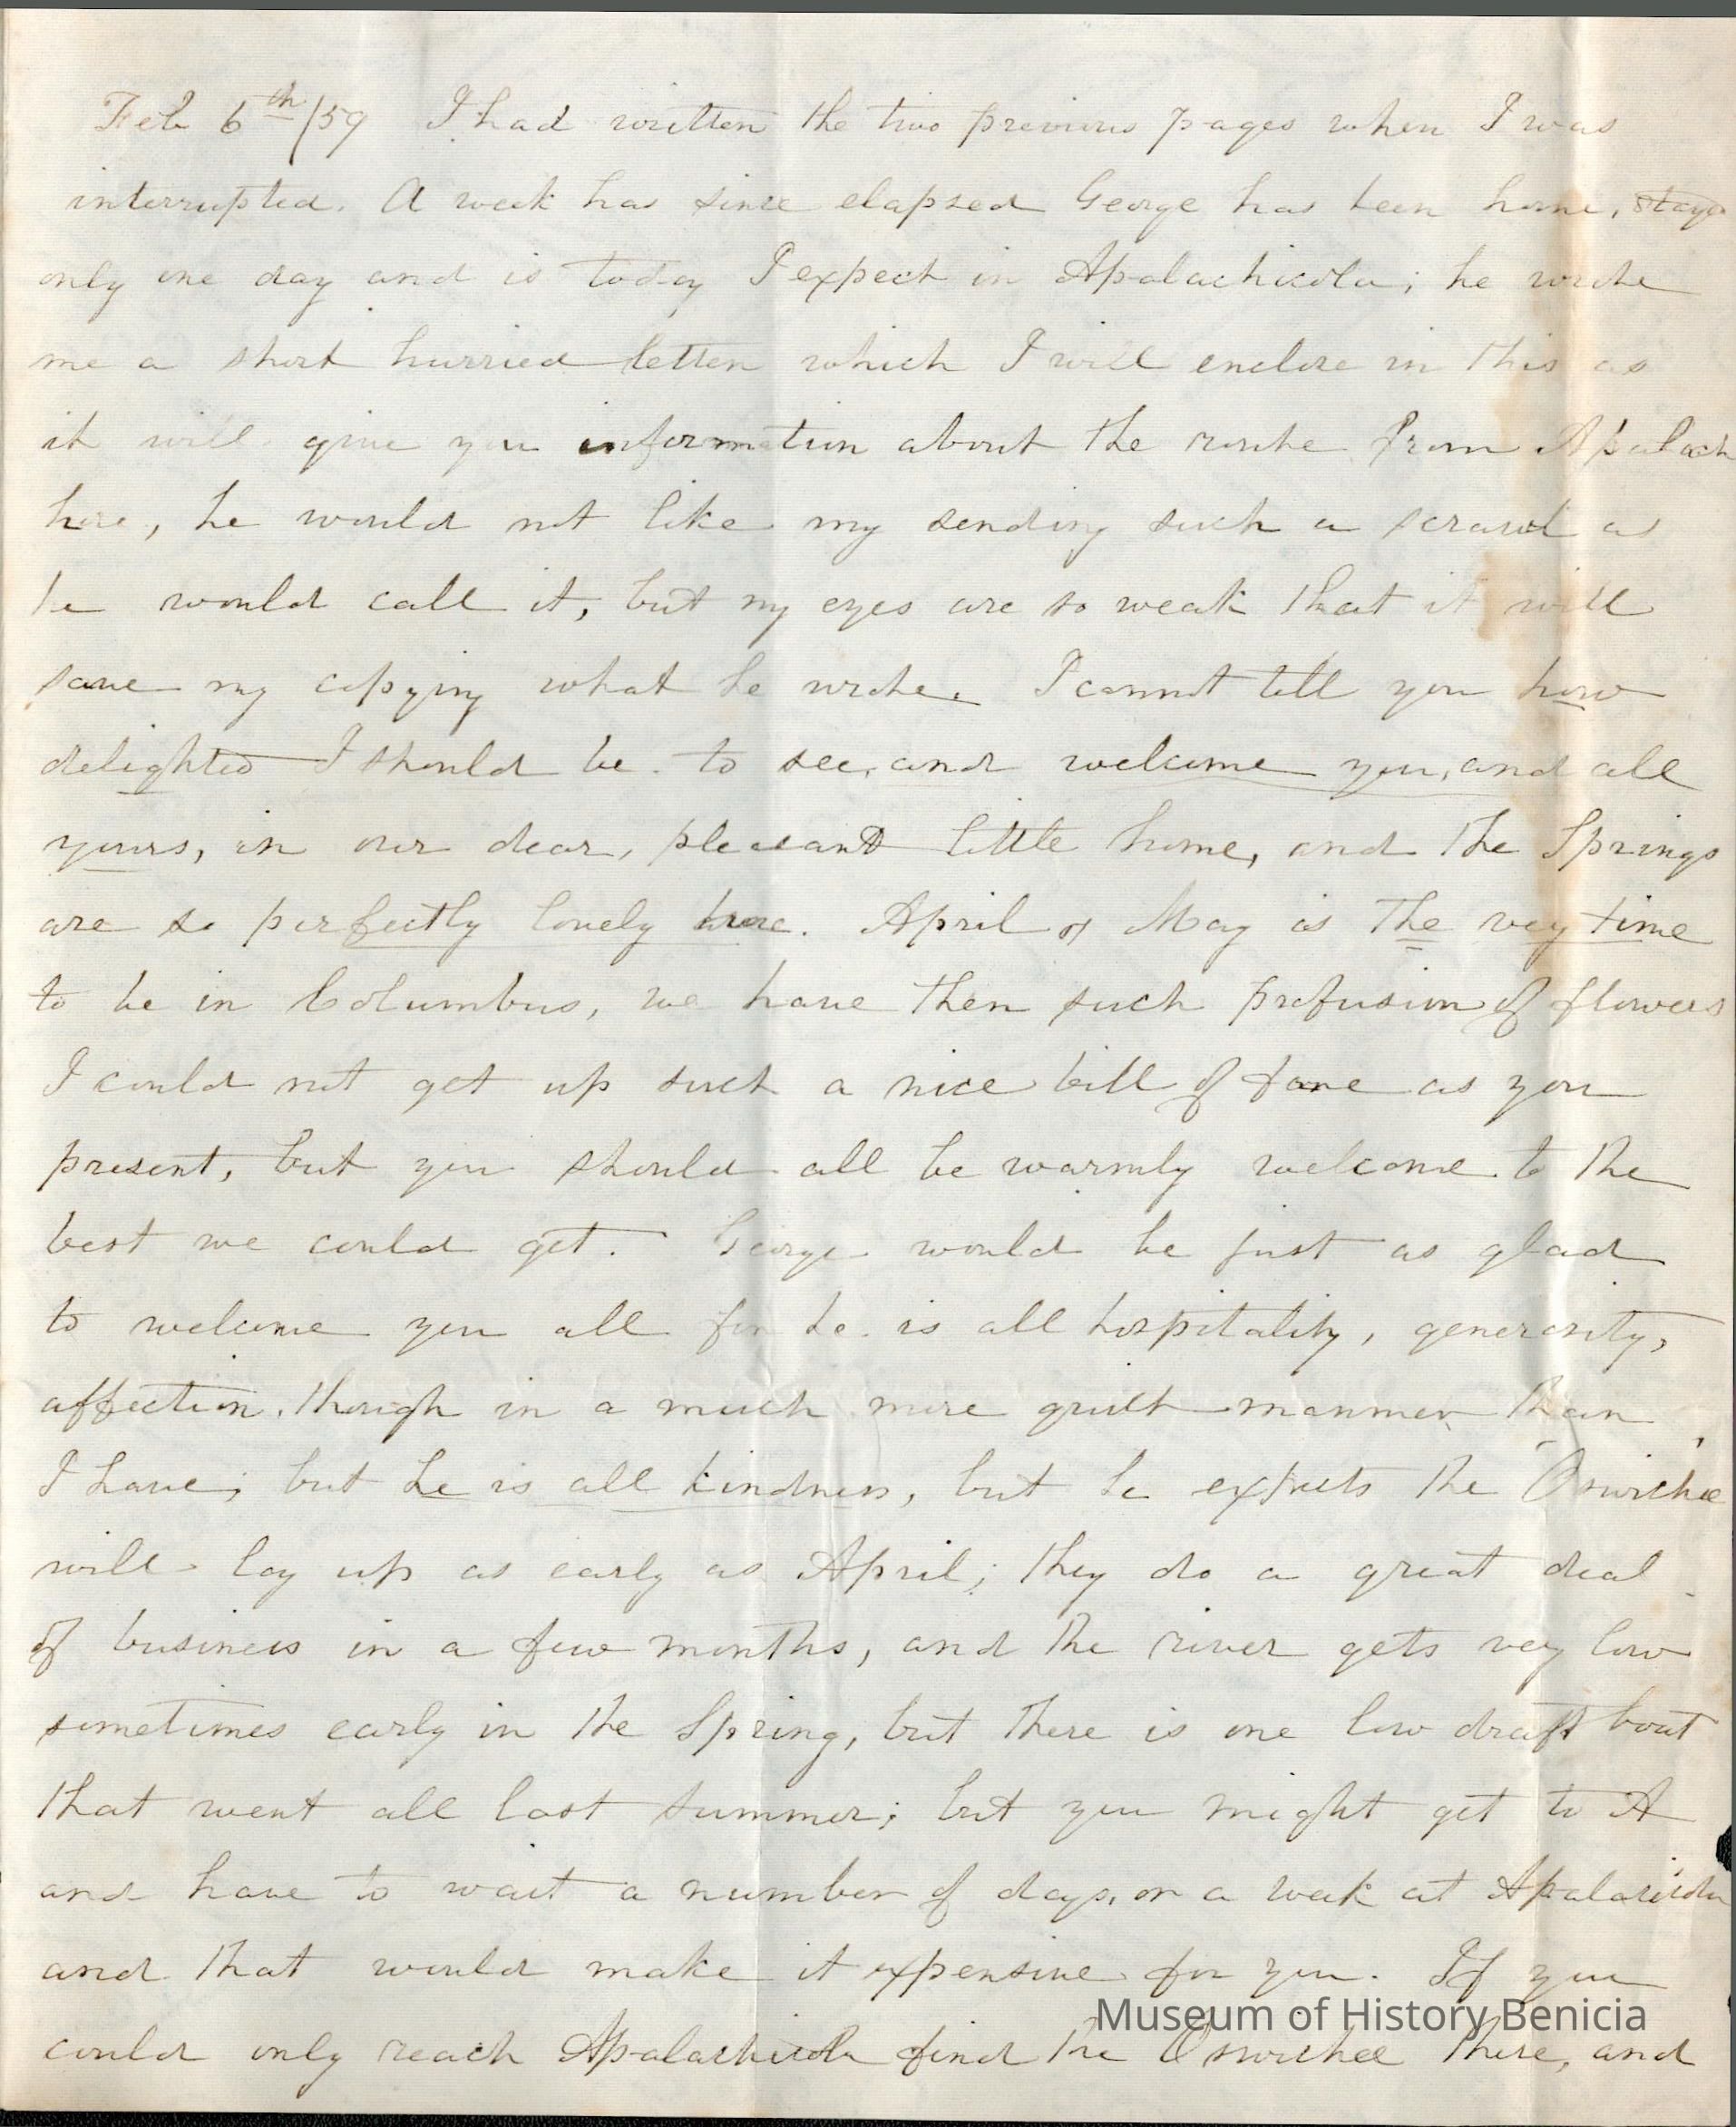 Feb 6th/59 I had written the two previous pages when I was
interrupted. A week has since elapsed George has been home, stays
only one day and is today I expect in Apalachicola; he wrote
me a short hurried letter which I will enclose in this as
it will give you information about the route from Apalach
here, he would not like my sending such a scrawl as
he would call it, but my eyes are so weak that it will
save my copying what he wrote. I cannot tell you how
delighted I should be to see, and welcome you, and all
yours, in our dear, pleasant little home, and the Springs
are so perfectly lovely here. April or May is the very time
to be in Columbus, we have then such profusion of flowers
I could not get up such a nice bill of fare as you
present, but you should all be warmly welcome to the
best we could get. George would be just as glad
to welcome you all for he is all hospitality, generosity,
affection, though in a much more quiet manner than
I have; but he is all kindness, but he expects the "Oswichee"
will lay up as early as April; they do a great deal
of business in a few months, and the river gets very low
sometimes early in the Spring, but there is one low draft boat
that went all last summer; but you might get to A
and have to wait a number of days, or a week at Apalachicola
and that would make it expensive for you. If you
could only reach Apalachicola find the Oswichee there, and
Museum of History Benicia